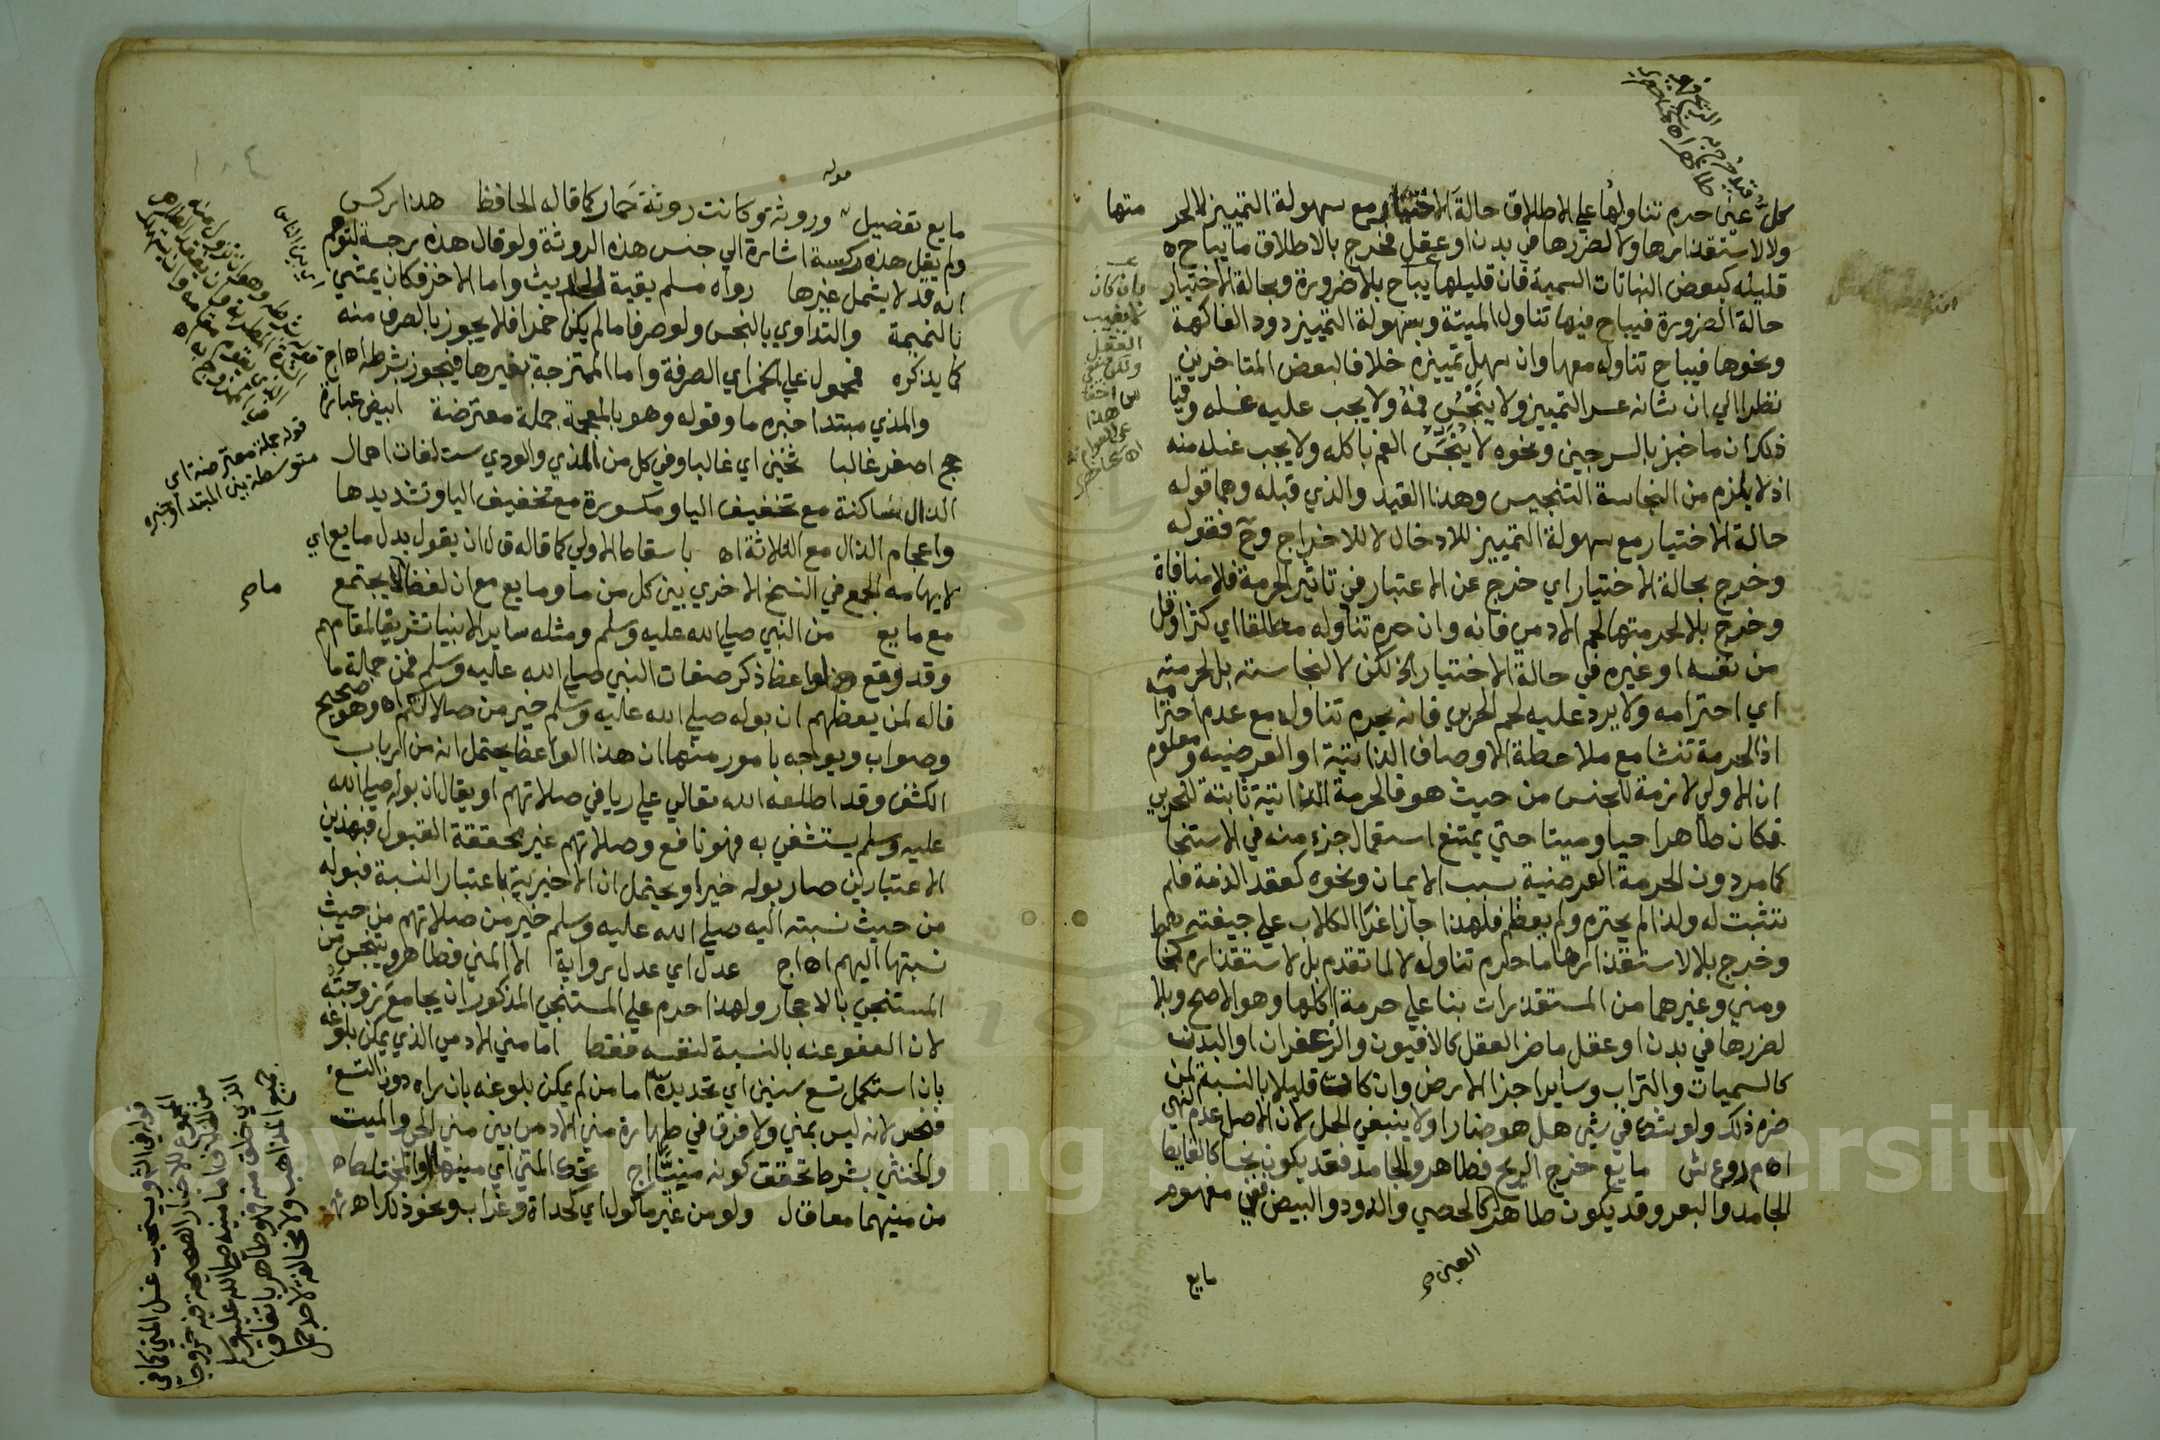 كل عين حرم تناولها علي الاطلاق حالة الاختيار مع سهولة التمييز لا لحر متها
ولا لاستقذارها ولا لضررها في بدن او عقل فخرج بالاطلاق ما يباح
قليله كبعض النباتات السمية فان قليلها يباح بلا ضرورة وبحالة الاختيار
حالة الضرورة فيباح فيها تناول الميتة وبسهولة التمييز دود الفاكهة
ونحوها فيباح تناوله معها وان سهل تمييزه خلافا لبعض المتاخرين
نظرا الي ان شانه عسر التمييز ولا ينجس فمه ولا يجب عليه غسله وقيا
ذلك ان ما خبز بالسرجين ونحوه لا ينجس الفم باكله ولا يجب غسله منه
اذ لا يلزم من النجاسة التنجيس وهذا القيد والذي قبله وهما قوله
حالة الاختيار مع سهولة التمييز للادخال لا للاخراج وح فقوله
وخرج بحالة الاختيار اي خرج عن الاعتبار في تاثير الحرمة فلا منافاة
وخرج بلا لحرمتها لحم الادمي فانه وان حرم تناوله مطلقا اي كثر او قل
من نفسه او غيره في حالة الاختيار الخ لكن لا لنجاسته بل لحرمته
اي احترامه ولا يرد عليه لحم الحربي فانه يحرم تناوله مع عدم احترامه
اذ الحرمة تنشا مع ملاحظة الاوصاف الذاتية او العرضية ومعلوم
ان الاولي لازمة للجنس من حيث هو فالحرمة الذاتية ثابتة للحربي
فكان طاهرا حيا وميتا حتي يمتنع استعمال جزء منه في الاستنجا
كما مر دون الحرمة العرضية بسبب الايمان ونحوه كعقد الذمة فلم
تثبت له ولذا لم يحترم ولم يعظم فلهذا جاز اغرا الكلاب علي جيفته
وخرج بلا لاستقذارها ما حرم تناوله لا لما تقدم بل لاستقذاره كمخا
ومني وغيرهما من المستقذرات بنا علي حرمة اكلها وهو الاصح وبلا
لضررها في بدن او عقل ما ضر العقل كالافيون والزعفران او البدن
كالسميات والتراب وساير اجزا الارض وان كانت قليلا بالنسبة لمن
ضره ذلك ولو شك في شي هل هو ضار اولا ينبغي الحل لان الاصل عدم النهي
ما يع خرج الريح فطاهر والجامد فقد يكون نجسا كالغايط
الجامد والبعر وقد يكون طاهرا كالحصي والدود والبيض ففي مفهوم
العين
مايع
مايع تفصيل وروثة وكانت روثة حمار كما قاله الحافظ هذا ركس
ولم يقل هذه ركسة اشارة الي جنس هذه الروثة ولو قال هذه رجسة لتوهم
انه قد لا يشمل غيرها رواه مسلم بقية الحديث واما الاخر فكان يمشي
بالنميمة والتداوي بالنجس ولو صرفا ما لم يكن خمرا فلا يجوز بالصرف منه
كما يذكره محمول علي الخمر اي الصرفة واما الممتزجة بغيرها فيجوز بشرطه اه اج
والمذي مبتدا خبره ما وقوله وهو بالمعجمة جملة معترضة ابيض عبارة
حج اصفر غالبا ثخين اي غالبا وفي كل من المذي والودي ست لغات اهمال
الدال ساكنة مع تخفيف اليا ومكسورة مع تخفيف اليا وتشديدها
واعجام الذال مع الثلاثة اه باسقاط الاولي كما قاله ق ل ان يقول بدل مايع اي
لايهامه الجمع في النسخ الاخري بين كل من ما ومايع مع ان لفظ ما لا يجتمع
مع مايع من النبي صلي الله عليه وسلم ومثله ساير الانبيا تشريفا لمقامهم
وقد وقع لواعظ ذكر صفات النبي صلي الله عليه وسلم فمن جملة ما
قاله لمن يعظهم ان بوله صلي الله عليه وسلم خير من صلاتكم اه وهو صحيح
وصواب ويوجه بامور منها ان هذا الواعظ يحتمل انه من ارباب
الكشف وقد اطلعه الله تعالي علي ريا في صلاتهم او يقال ان بوله صلي الله
عليه وسلم يستشفي به فهو نافع وصلاتهم غير محققة القبول فبهذين
الاعتبارين صار بوله خيرا ويحتمل ان الاخيرية باعتبار النسبة فبوله
من حيث نسبته اليه صلي الله عليه وسلم خير من صلاتهم من حيث
نسبتها اليهم اه اج عدل اي عدل رواية الا المني فطاهر وينجس من
المستنجي بالاحجار ولهذا حرم علي المستنجي المذكور ان يجامع زوجته
لان العفو عنه بالنسبة لنفسه فقط اما مني الادمي الذي يمكن بلوغه
بان استكمل تسع سنين اي تحديدية اما من لم يمكن بلوغه بان راه دون التسع
فنجس لانه ليس بمني ولا فرق في طهارة مني الادمي بين مني الحي والميت
والخنثي بشرط تحقق كونه منيا اج
من منيهما معا ق ل ولو من غير ماكول اي كحداة وغراب ونحو ذلك اه
قوله جملة معترضة اي
متوسطة بين المبتدا وخبره
ما صح
قوله في الثو ويستحب غسل المني كما في
المجموع للاخبار الصحيحة فيه خروجا
من الخلاف واما منيه صلي الله عليه وسلم
الذي خلق منه فهو طاهر باتفاق
جميع المذاهب ولا مخالفة لاحد